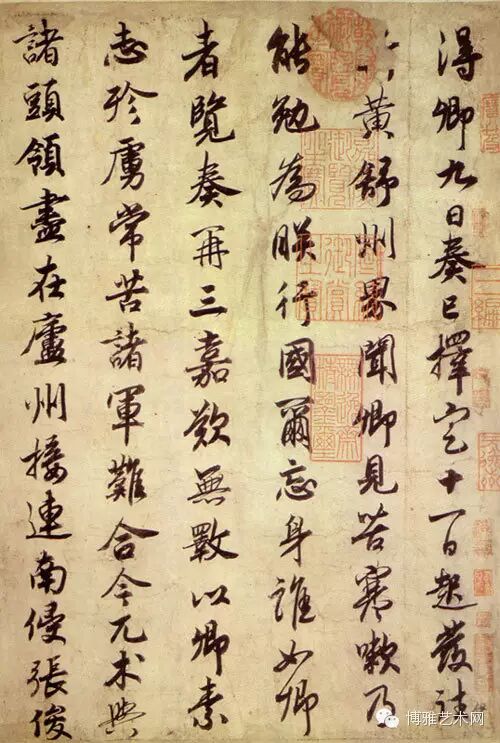 得卿九日奏已擇定十一日起發往
黃舒州界聞卿見苦寒嗽乃
能勉為朕行國爾忘身誰如卿
者覽奏再三嘉歎無斁以卿素
志殄虜常苦諸軍難合今兀朮與
諸頭領盡在廬州接連南侵張俊
博雅艺术网